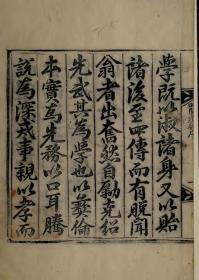 學旣以淑諸身又以貽
諸後至四傳而有脫聞
翁者出奮然自勵克紹
先武其為學也以彝倫
本實為先務以口耳騰
說為深戒事親以孝而